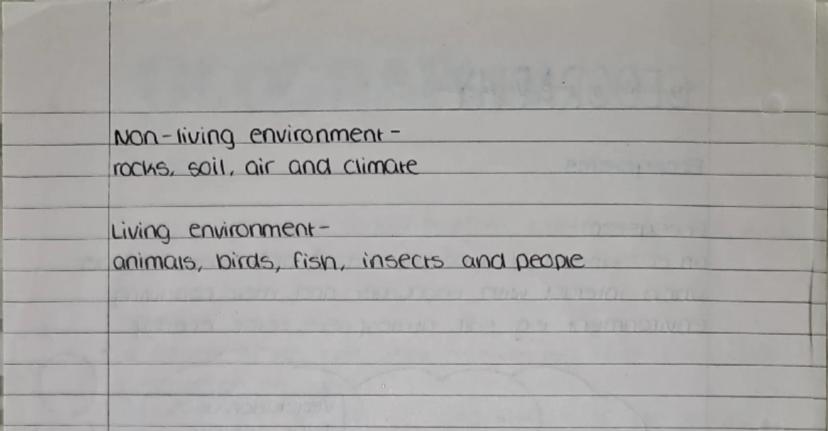 Non-living environment-
rocks, soil, air and climate
Living environment-
animals, birds, fish, insects and people